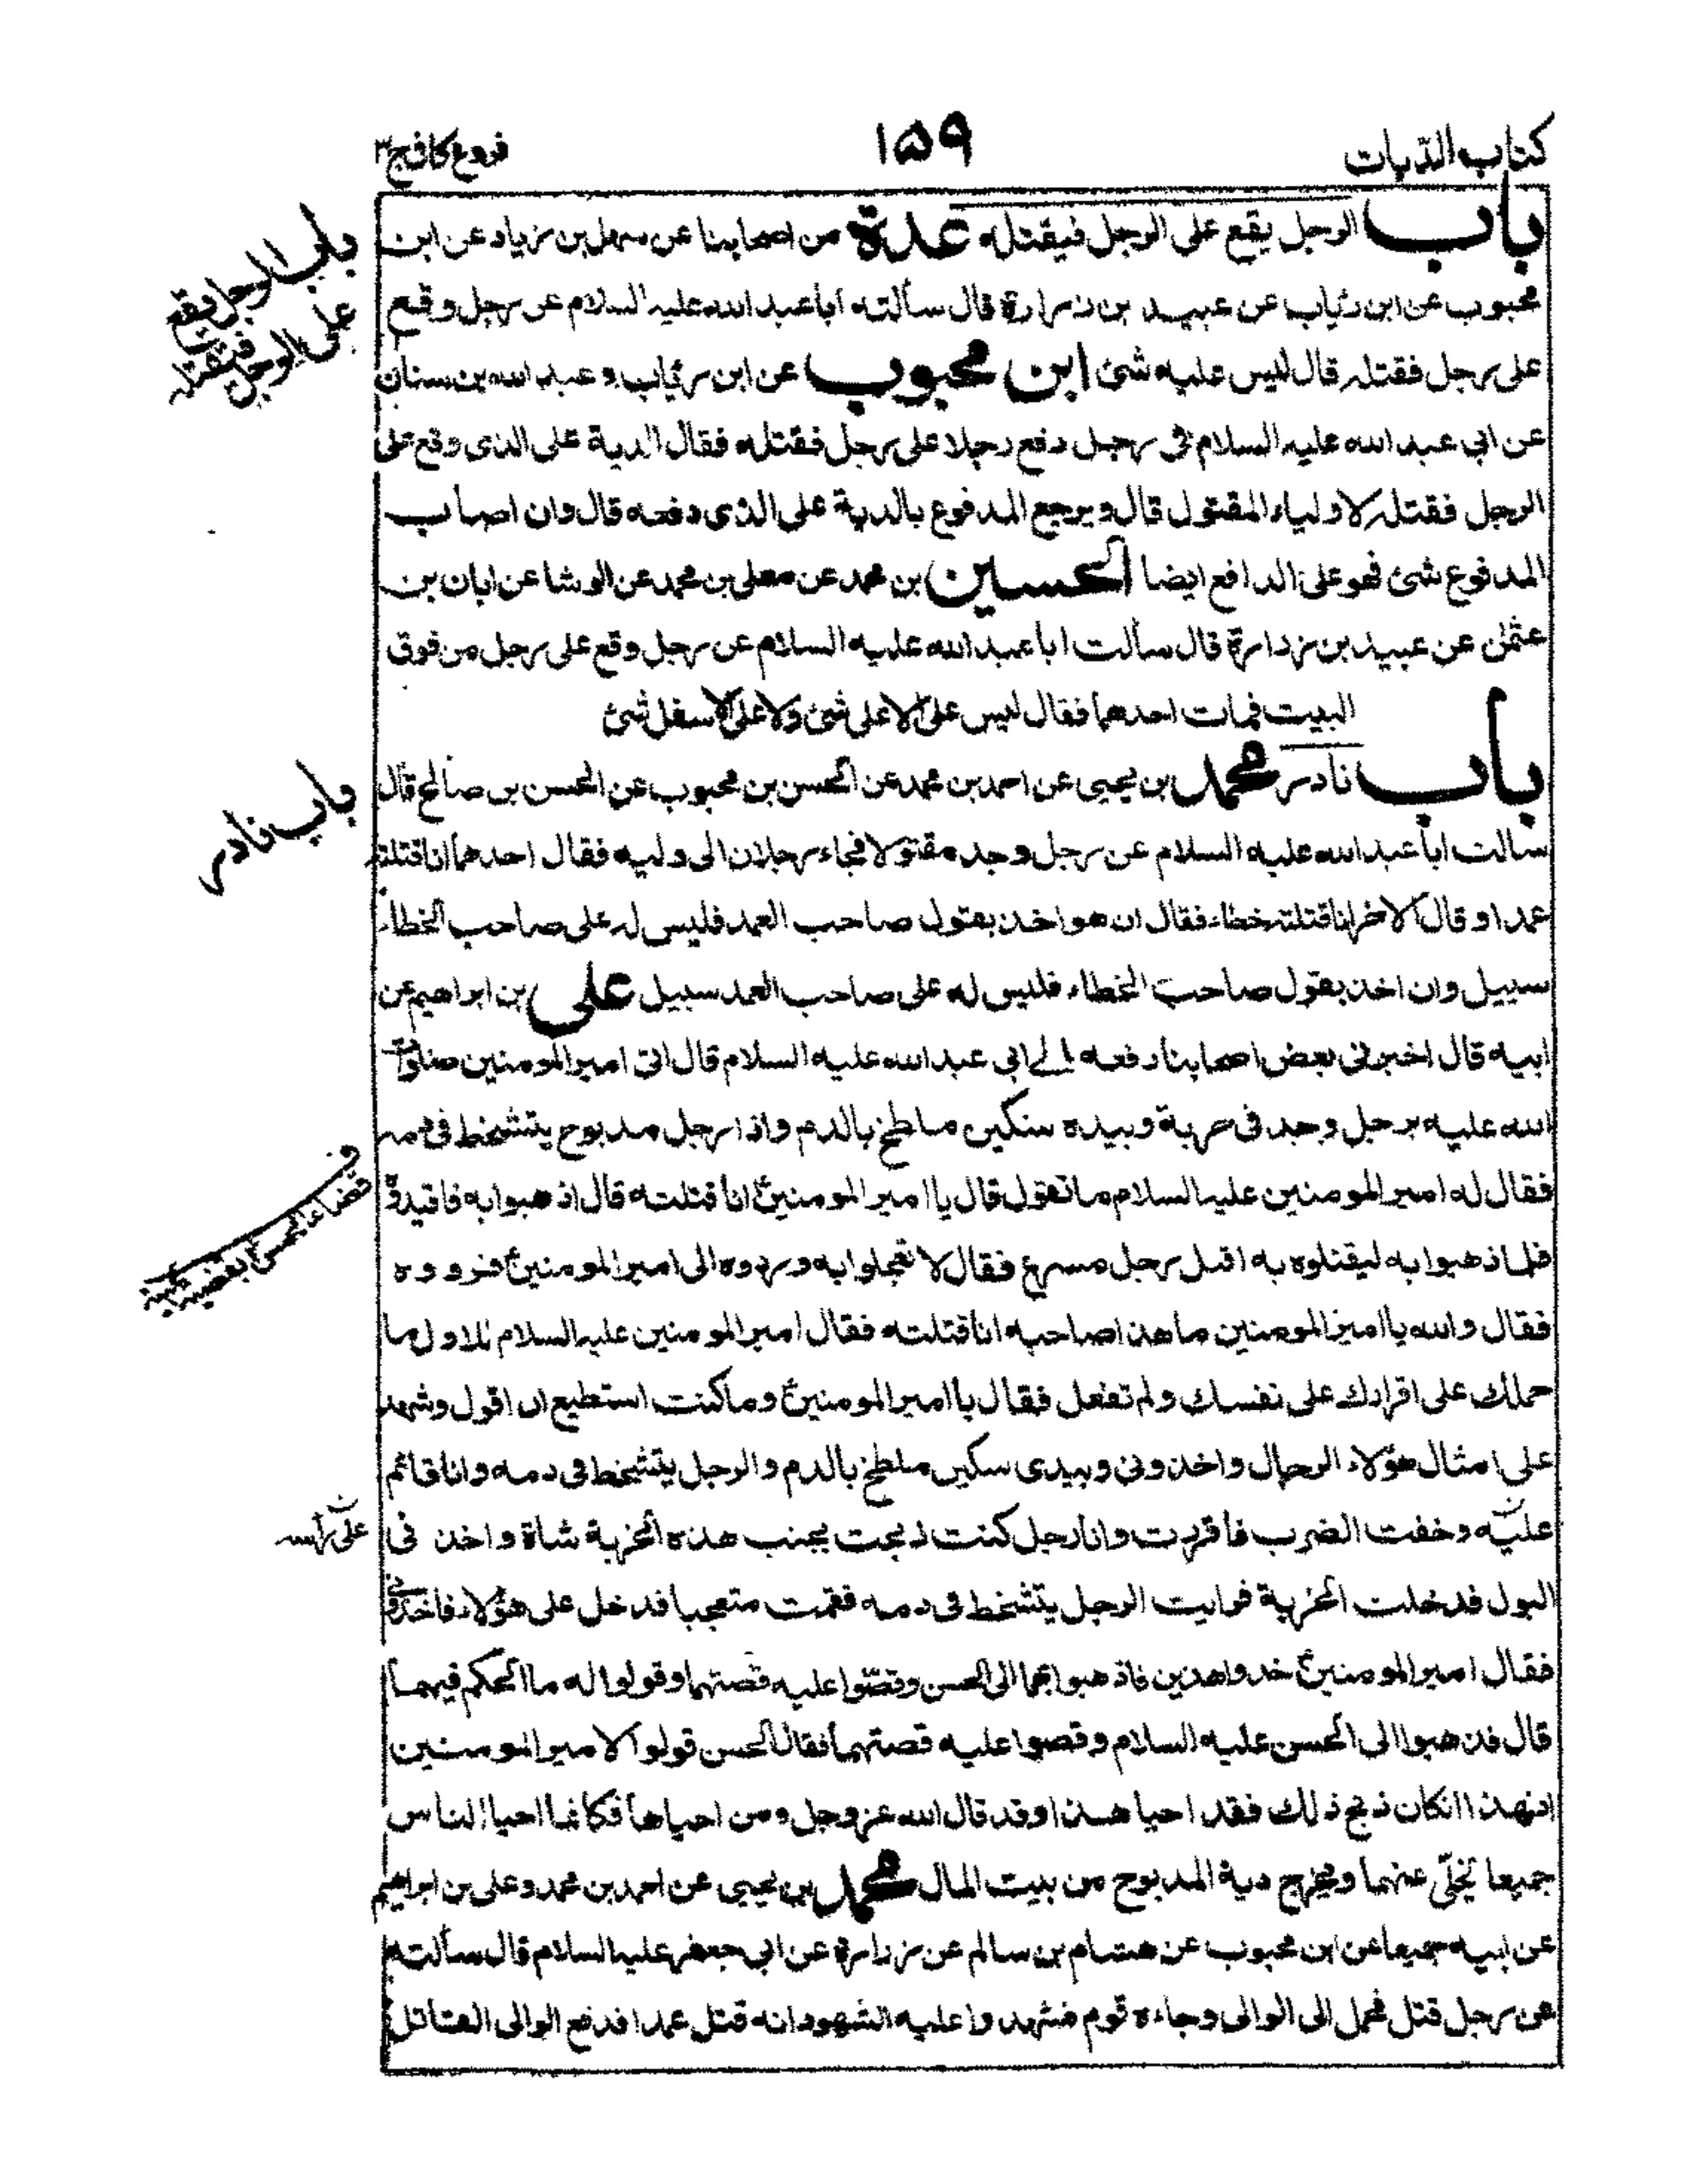 كتاب الديات
١٥٩
فروع كافى ج٣
باب الرجل يقع على الرجل فيقتله عدة من اصحابنا عن سهل بن زياد عن ابن
محبوب عن ابن رئاب عن عبيد بن زرارة قال سألت اباعبد الله عليه السلام عن رجل وقع
على رجل فقتله قال ليس عليه شئ ابن محبوب عن ابن رئاب و عبد الله بن سنان
عن ابي عبد الله عليه السلام فى رجل دفع رجلا على رجل فقتله فقال الدية على الذى وقع على
الرجل فقتله لاولياء المقتول قال ويرجع المدفوع بالدية على الذى دفعه قال وان اصاب
المدفوع شئ فهو على الدافع ايضا الحسين بن محمد عن معلى بن محمد عن الوشا عن ابان بن
عثمن عن عبيد بن زرارة قال سألت اباعبد الله عليه السلام عن رجل وقع على رجل من فوق
البيت فمات احدهما فقال ليس على الاعلى شئ ولا على الاسفل شئ
باب نادر محمد بن يحيى عن احمد بن محمد عن الحسن بن محبوب عن الحسن بن صالح قال
سالت اباعبد الله عليه السلام عن رجل وجد مقتولا فجاء رجلان الى وليه فقال احدهما انا قتلته
عمدا وقال الاخر انا قتلته خطاء فقال ان هو اخذ بقول صاحب العمد فليس له على صاحب الخطاء
سبيل وان اخذ بقول صاحب الخطاء فليس له على صاحب العمد سبيل على بن ابراهيم عن
ابيه قال اخبرنى بعض اصحابنا رفعه الى ابى عبد الله عليه السلام قال اتى امير المومنين صلوات
الله عليه برجل وجد فى خربة وبيده سكين ملطخ بالدم واذا رجل مذبوح يتشخط فى دمه
فقال له امير المومنين عليه السلام ما تقول قال يا امير المومنين انا قتلته قال اذهبوا به فاقيدوه
فلما ذهبوا به ليقتلوه به اقبل رجل مسرع فقال لا تعجلوا به وردوه الى امير المومنين فردوه
فقال والله يا امير المومنين ما هذا صاحبه انا قتلته فقال امير المومنين عليه السلام للاول ما
حملك على اقرارك على نفسك ولم تفعل فقال يا امير المومنين وما كنت استطيع ان اقول وشهد
على امثال هؤلاء الرجال واخذونى وبيدى سكين ملطخ بالدم والرجل يتشخط فى دمه وانا قائم
عليه وخفت الضرب فاقررت وانا رجل كنت ذبحت بجنب هذه الخربة شاة واخذنى
البول فدخلت الخربة فرايت الرجل يتشخط فى دمه فقمت متعجبا فدخل على هؤلاء فاخذونى
فقال امير المومنين خذوا هذين فاذهبوا بهما الى الحسن وقصّوا عليه قصّتهما وقولوا له ما الحكم فيهما
قال فذهبوا الى الحسن عليه السلام وقصوا عليه قصتهما فقال الحسن قولوا لامير المومنين
ان هذا انكان ذبح ذلك فقد احيا هذا وقد قال الله عز وجل ومن احياها فكانما احيا الناس
جميعا يخلّى عنهما ويخرج دية المذبوح من بيت المال محمد بن يحيى عن احمد بن محمد وعلى بن ابراهيم
عن ابيه جميعا عن ابن محبوب عن هشام بن سالم عن زرارة عن ابى جعفر عليه السلام قال سألته
عن رجل قتل فحمل الى الوالى وجاءه قوم فشهدوا عليه الشهود انه قتل عمدا فدفع الوالى القاتل
باب الرجل يقع
على الرجل
فيقتله
باب نادر
على رأسه